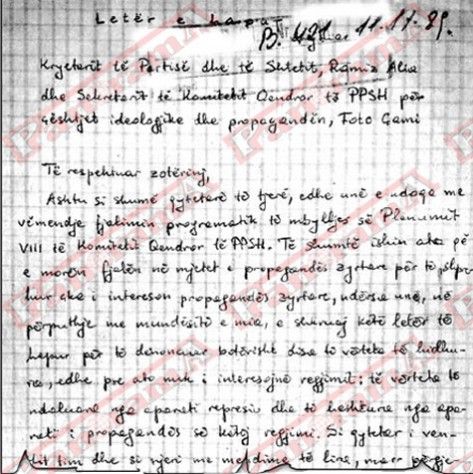 Letër e hapur
B. Nr 421 11.11.89.
Kryetarit të Partisë dhe të Shtetit, Ramiz Alia
dhe Sekretarit të Komitetit Qendror të PPSH për
çështjet ideologjike dhe propagandën, Foto Çami
Të respektuar zotërinj,
Ashtu si shumë qytetarë të tjerë, edhe unë e ndoqa me
vëmendje fjalimin programatik të mbylljes së Plenumit
VIII të Komitetit Qendror të PPSH. Të shumtë ishin ata që
e morën fjalën në mjetet e propagandës zyrtare për të
hur ate i intereson propagandës zyrtare, ndërsa unë, në
përputhje me mundësitë e mia, e shkruaj këtë letër të
hapur për të denoncuar botërisht disa të vërteta të hidhu-
ra, edhe pse ato nuk i interesojnë regjimit: të vërteta të
ndaluara nga aparati represiv dhe të heshtura nga apa-
rati i propagandës së këtij regjimi. Si qytetar i ven-
dit tim dhe si njeri me mendime të lira, marr përgje-
PanoramA